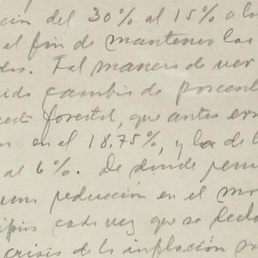 ción del 30% al 15% o la
al fin de mantener las
das. Tal manera de ver
cambio de porcent
forestal, que antes er
en el 18.75%, y la de l
al 6%. De donde
una reducción en el mo
cada vez que se decla
crisis de la inflación